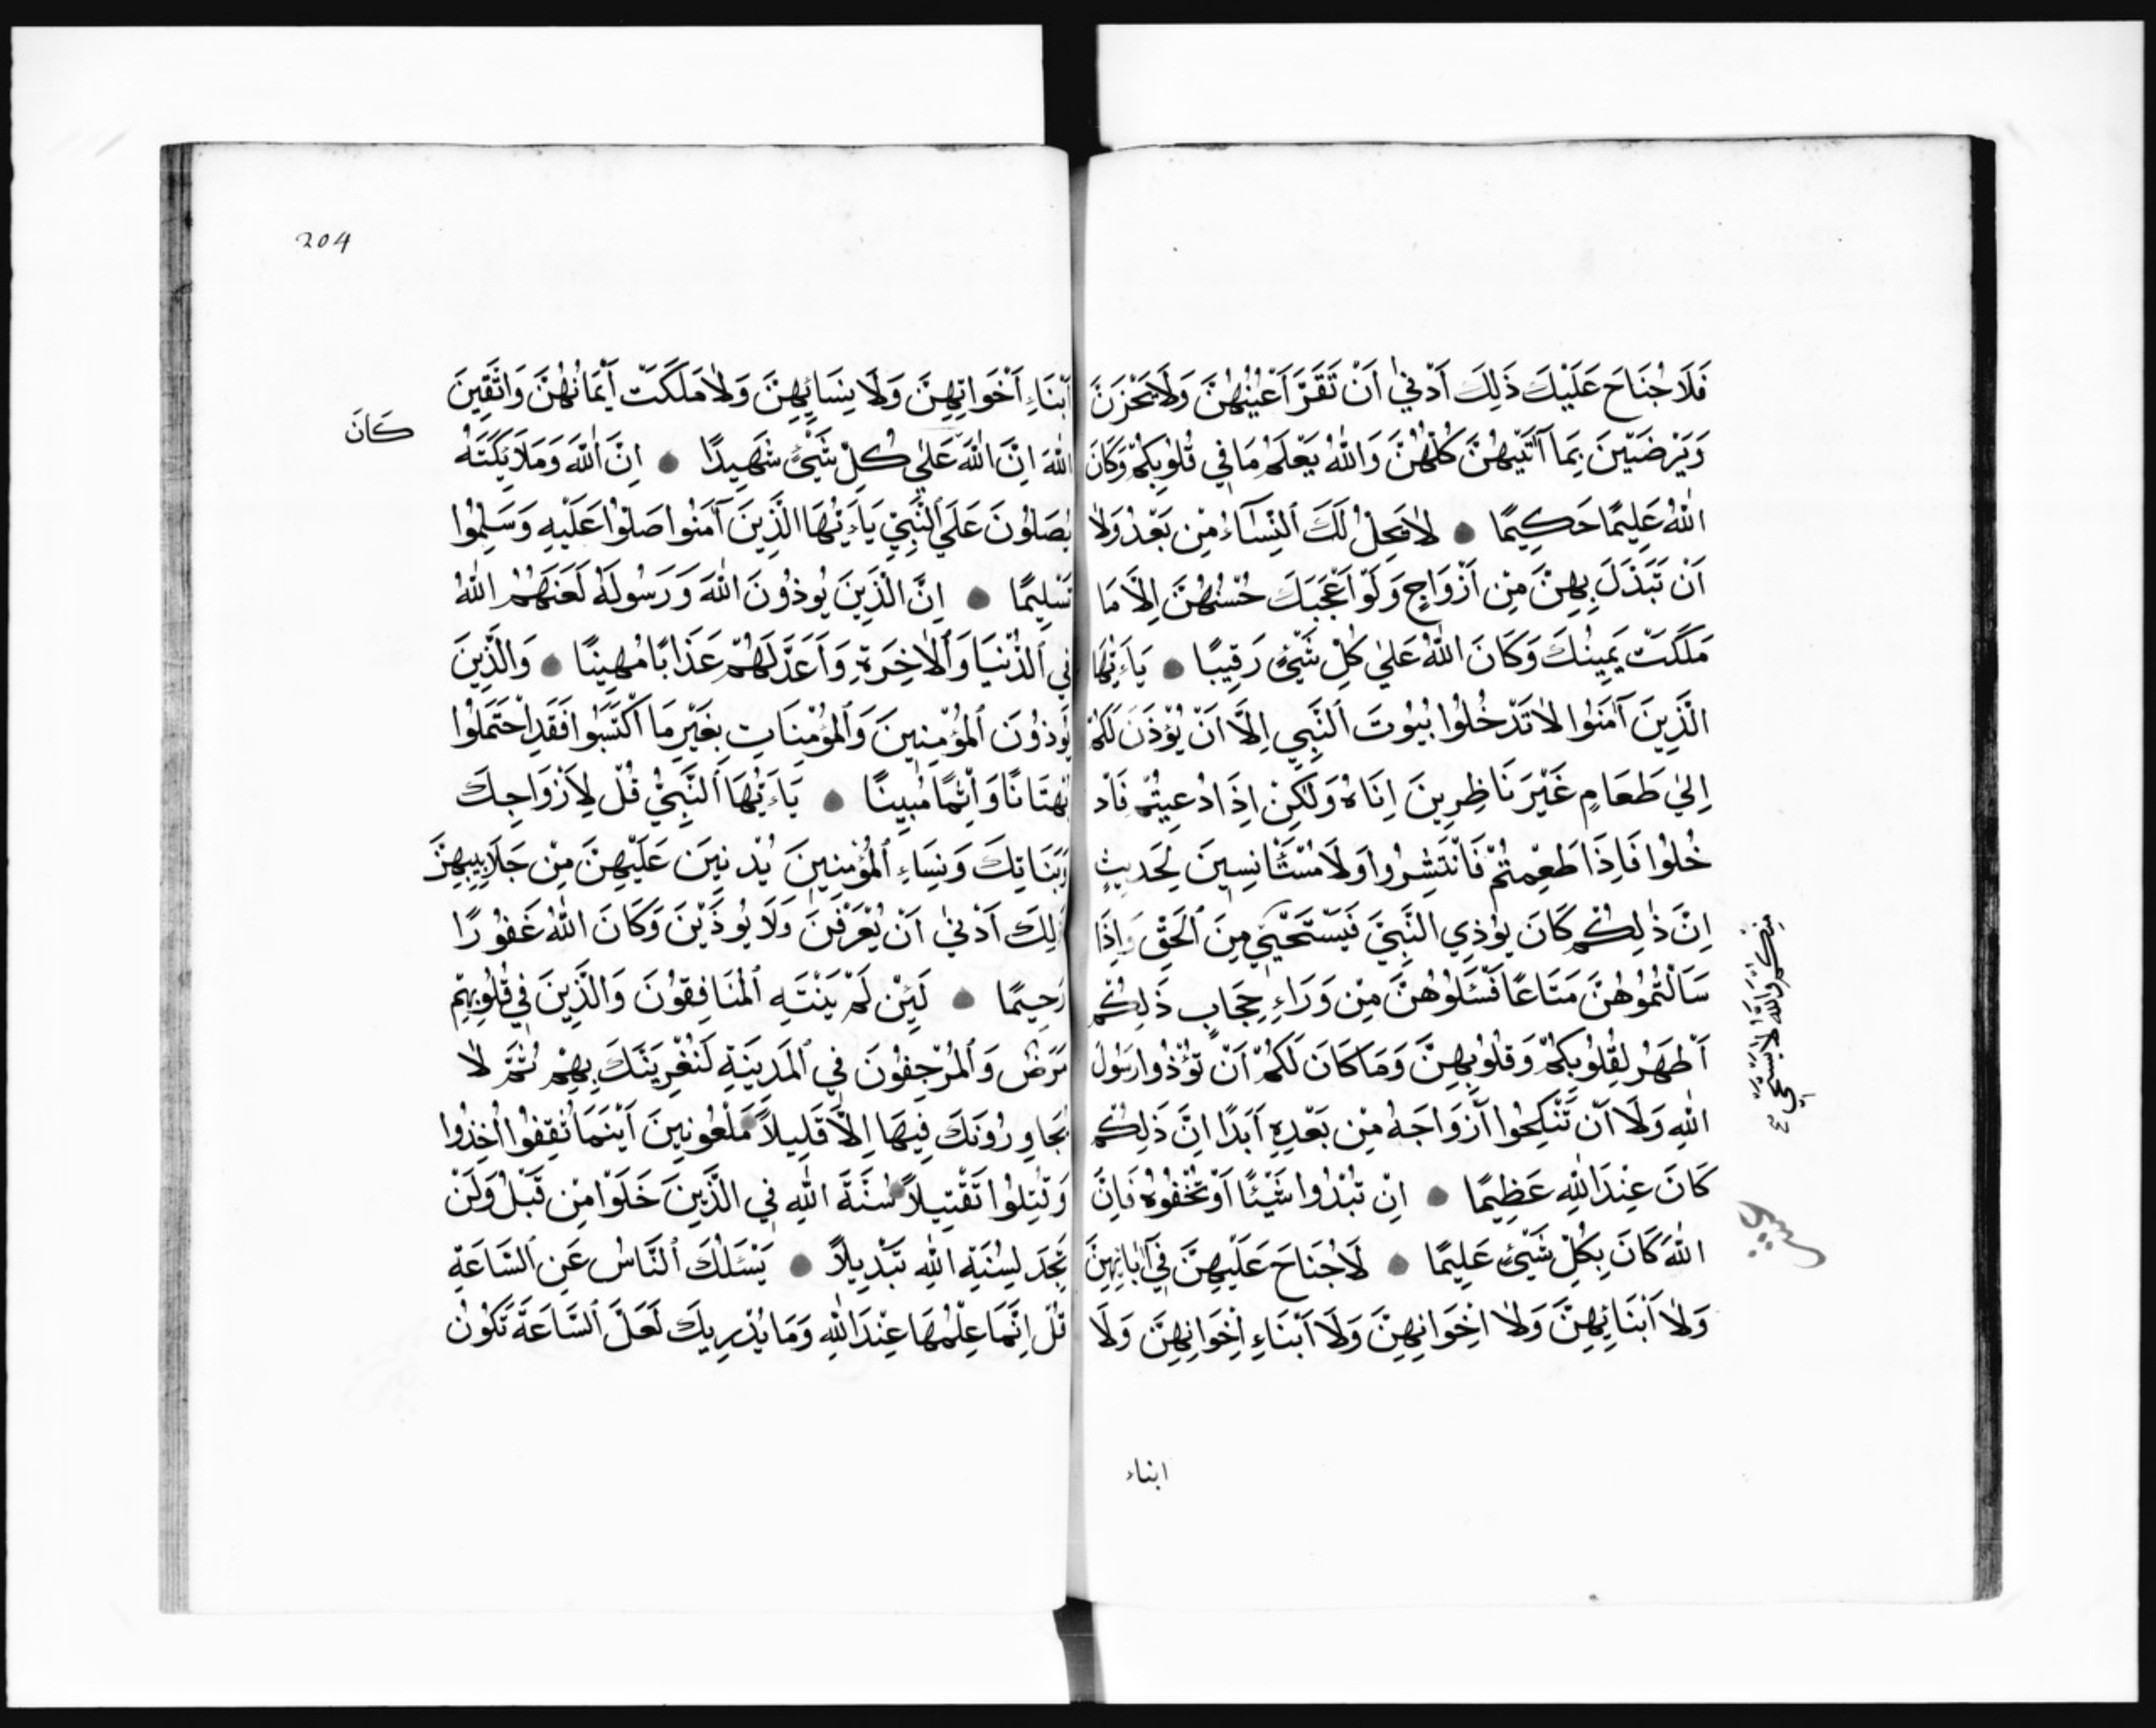 فَلَا جُنَاحَ عَلَيْكَ ذَلِكَ اَدْنىٰ اَنْ تَقَرَّ اَعْيُنُهُنَّ وَلَا يَحْزَنَ
وَيَرْضَيْنَ بِمَا آتَيْتَهُنَّ كُلُّهُنَّ وَاللّٰهُ يَعْلَمُ مَا فِي قُلُوبِكُمْ وَكَانَ
اللّٰهُ عَلِيمًا حَكِيمًا ● لَا يَحِلُّ لَكَ النِّسَآءُ مِنْ بَعْدُ وَلَا
اَنْ تَبَدَّلَ بِهِنَّ مِنْ اَزْوَاجٍ وَلَوْ اَعْجَبَكَ حُسْنُهُنَّ اِلَّا مَا
مَلَكَتْ يَمِينُكَ وَكَانَ اللّٰهُ عَلىٰ كُلِّ شَيْئٍ رَقِيبًا ● يَاءَيُّهَا
الَّذِينَ آمَنُوا لَا تَدْخُلُوا بُيُوتَ النَّبِيِّ اِلَّا اَنْ يُؤْذَنَ لَكُمْ
اِلىٰ طَعَامٍ غَيْرَ نَاظِرِينَ اِنَاهُ وَلٰكِنْ اِذَا دُعِيتُمْ فَاد
خُلُوا فَاِذَا طَعِمْتُمْ فَانْتَشِرُوا وَلَا مُسْتَانِسِينَ لِحَدِيثٍ
اِنَّ ذٰلِكُمْ كَانَ يُوذِي النَّبِيَّ فَيَسْتَحْيِي مِنَ الْحَقِّ وَاِذَا
مِنْكُمْ وَاللّٰهُ لَا يَسْتَحْيِي
سَاَلْتُمُوهُنَّ مَتَاعًا فَسْئَلُوهُنَّ مِنْ وَرَاءِ حِجَابٍ ذَلِكُمْ
اَطْهَرُ لِقُلُوبِكُمْ وَقُلُوبِهِنَّ وَمَا كَانَ لَكُمْ اَنْ تُؤْذُوا رَسُولَ
اللّٰهِ وَلَا اَنْ تَنْكِحُوا اَزْوَاجَهُ مِنْ بَعْدِهِ اَبَدًا اِنَّ ذَلِكُمْ
كَانَ عِنْدَ اللّٰهِ عَظِيمًا ● اِنْ تُبْدُوا شَيْئًا اَوْ تُخْفُوهُ فَاِنَّ
اللّٰهَ كَانَ بِكُلِّ شَيْئٍ عَلِيمًا ● لَا جُنَاحَ عَلَيْهِنَّ فِي آبَائِهِنَّ
وَلَا اَبْنَائِهِنَّ وَلَا اِخْوَانِهِنَّ وَلَا اَبْنَاءِ اِخْوَانِهِنَّ وَلَا
ابناء
204
اَبْنَاءِ اَخَوَاتِهِنَّ وَلَا نِسَائِهِنَّ وَلَا مَلَكَتْ اَيْمَانُهُنَّ وَاتَّقِينَ
اللّٰهَ اِنَّ اللّٰهَ عَلىٰ كُلِّ شَيْئٍ شَهِيدًا ● اِنَّ اللّٰهَ وَمَلَائِكَتَهُ
كَانَ
يُصَلُّونَ عَلَي النَّبِيِّ يَاءَيُّهَا الَّذِينَ آمَنُوا صَلُّوا عَلَيْهِ وَسَلِّمُوا
تَسْلِيمًا ● اِنَّ الَّذِينَ يُوذُونَ اللّٰهَ وَرَسُولَهُ لَعَنَهُمُ اللّٰهُ
فِي الدُّنْيَا وَالْاخِرَةِ وَاَعَدَّ لَهُمْ عَذَابًا مُهِينًا ● وَالَّذِينَ
يُوذُونَ الْمُؤْمِنِينَ وَالْمُؤْمِنَاتِ بِغَيْرِ مَا اكْتَسَبُوا فَقَدِ احْتَمَلُوا
بُهْتَانًا وَاِثْمًا مُبِينًا ● يَاءَيُّهَا النَّبِيُّ قُلْ لِاَزْوَاجِكَ
وَبَنَاتِكَ وَنِسَاءِ الْمُؤْمِنِينَ يُدْنِينَ عَلَيْهِنَّ مِنْ جَلَابِيبِهِنَّ
ذٰلِكَ اَدْنىٰ اَنْ يُعْرَفْنَ وَلَا يُوذَيْنَ وَكَانَ اللّٰهُ غَفُورًا
رَحِيمًا ● لَئِنْ لَمْ يَنْتَهِ الْمُنَافِقُونَ وَالَّذِينَ فِي قُلُوبِهِمْ
مَرَضٌ وَالْمُرْجِفُونَ فِي الْمَدِينَةِ لَنُغْرِيَنَّكَ بِهِمْ ثُمَّ لَا
يُجَاوِرُونَكَ فِيهَا اِلَّا قَلِيلاً ● مَلْعُونِينَ اَيْنَمَا ثُقِفُوا اُخِذُوا
وَقُتِلُوا تَقْتِيلاً ● سُنَّةَ اللّٰهِ فِي الَّذِينَ خَلَوْا مِنْ قَبْلُ وَلَنْ
تَجِدَ لِسُنَّةِ اللّٰهِ تَبْدِيلاً ● يَسْئَلُكَ النَّاسُ عَنِ السَّاعَةِ
قُلْ اِنَّمَا عِلْمُهَا عِنْدَ اللّٰهِ وَمَا يُدْرِيكَ لَعَلَّ السَّاعَةَ تَكُونُ